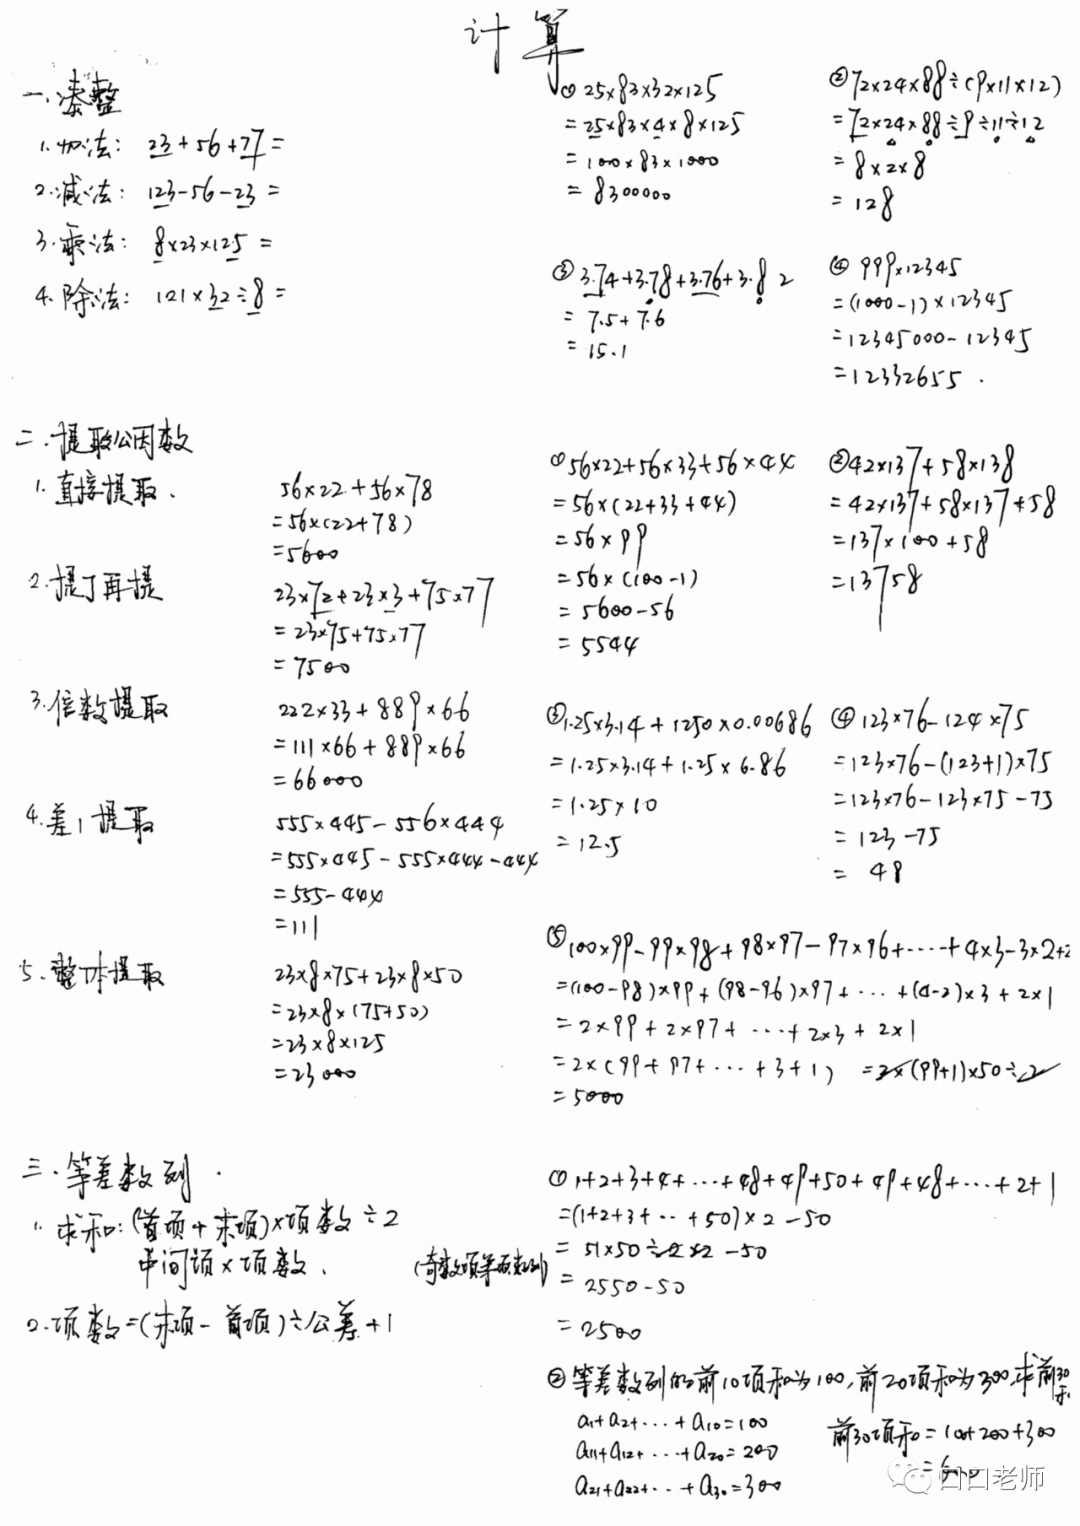 计算
一.凑整
1.加法: 23+56+77=
2.减法: 123-56-23=
3.乘法: 8×23×125=
4.除法: 121×32÷8=
① 25×83×32×125
=25×83×4×8×125
=100×83×1000
=8300000
② 72×24×88÷(9×11×12)
=72×24×88÷9÷11÷12
=8×2×8
=128
③ 3.74+3.78+3.76+3.82
=7.5+7.6
=15.1
④ 999×12345
=(1000-1)×12345
=12345000-12345
=12332655.
二.提取公因数
1.直接提取.
56×22+56×78
=56×(22+78)
=5600
2.提了再提
23×72+23×3+75×77
=23×75+75×77
=7500
3.倍数提取
222×33+889×66
=111×66+889×66
=66000
4.差1提取
555×445-556×444
=555×445-555×444-444
=555-444
=111
5.整体提取
23×8×75+23×8×50
=23×8×(75+50)
=23×8×125
=23000
① 56×22+56×33+56×44
=56×(22+33+44)
=56×99
=56×(100-1)
=5600-56
=5544
② 42×137+58×138
=42×137+58×137+58
=137×100+58
=13758
③ 1.25×3.14+1250×0.00686
=1.25×3.14+1.25×6.86
=1.25×10
=12.5
④ 123×76-124×75
=123×76-(123+1)×75
=123×76-123×75-75
=123-75
=48
⑤ 100×99-99×98+98×97-97×96+……+4×3-3×2+2
=(100-98)×99+(98-96)×97+…+(4-2)×3+2×1
=2×99+2×97+…+2×3+2×1
=2×(99+97+…+3+1) =2×(99+1)×50÷2
=5000
三.等差数列.
1.求和:(首项+末项)×项数÷2
中间项×项数. (奇数项等差数列)
2.项数=(末项-首项)÷公差+1
① 1+2+3+4+…+48+49+50+49+48+…+2+1
=(1+2+3+…+50)×2-50
=51×50÷2×2-50
=2550-50
=2500
② 等差数列的前10项和为100,前20项和为300,求前30和
a1+a2+…+a10=100
a11+a12+…+a20=200
a21+a22+…+a30=300
前30项和=100+200+300
=600
口口老师